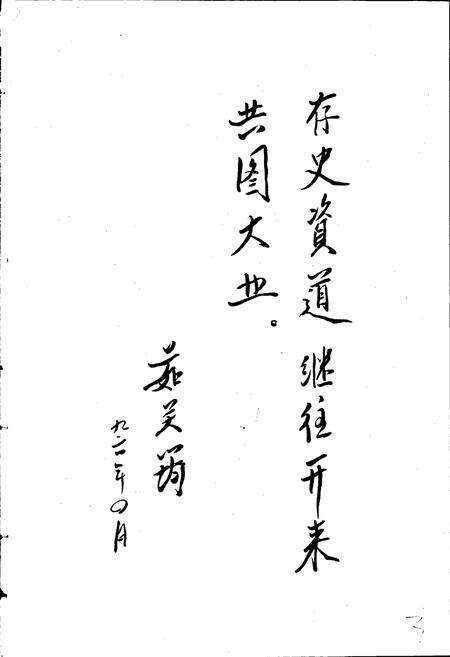 存史資道继往开来
共图大业。
茹关筠
九二年四月